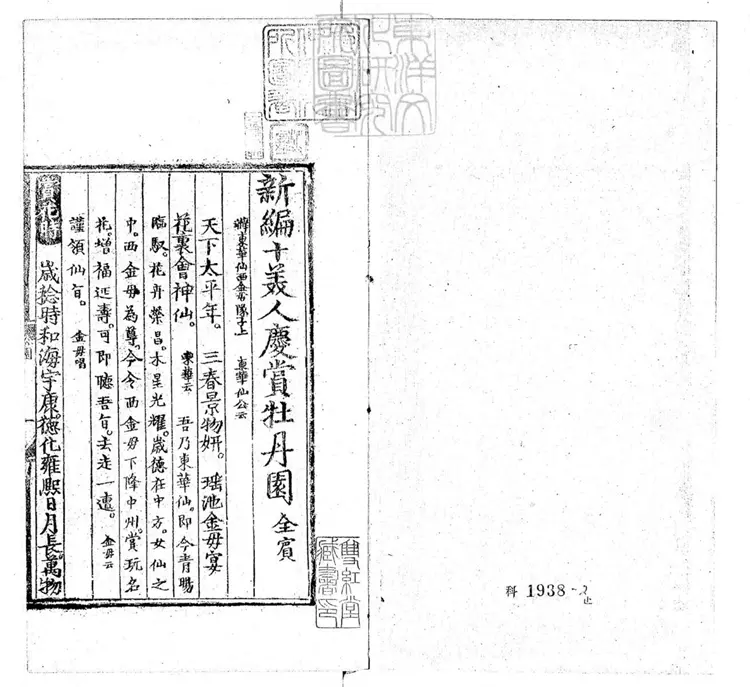 東洋文
化研究
所圖書
科 1938 - 2止
新編十美人慶賞牡丹園 全賓
辦東華仙西金母隊子上 東華仙公云
天下太平年。 三春景物妍。 瑤池金母宴
花裏會神仙。 東華云 吾乃東華仙。即今青暘
臨馭。花卉榮昌。木星光耀。歲德在中方。女仙之
中。西金母為尊。今令西金母下降中州。賞玩名
花。增福延壽。可即聽吾旨。去走一遭。 金母云
謹領仙旨。 金母唱
賞花時 歲稔時和海宇康。德化雍熙日月長。萬物
雙紅堂
藏書印